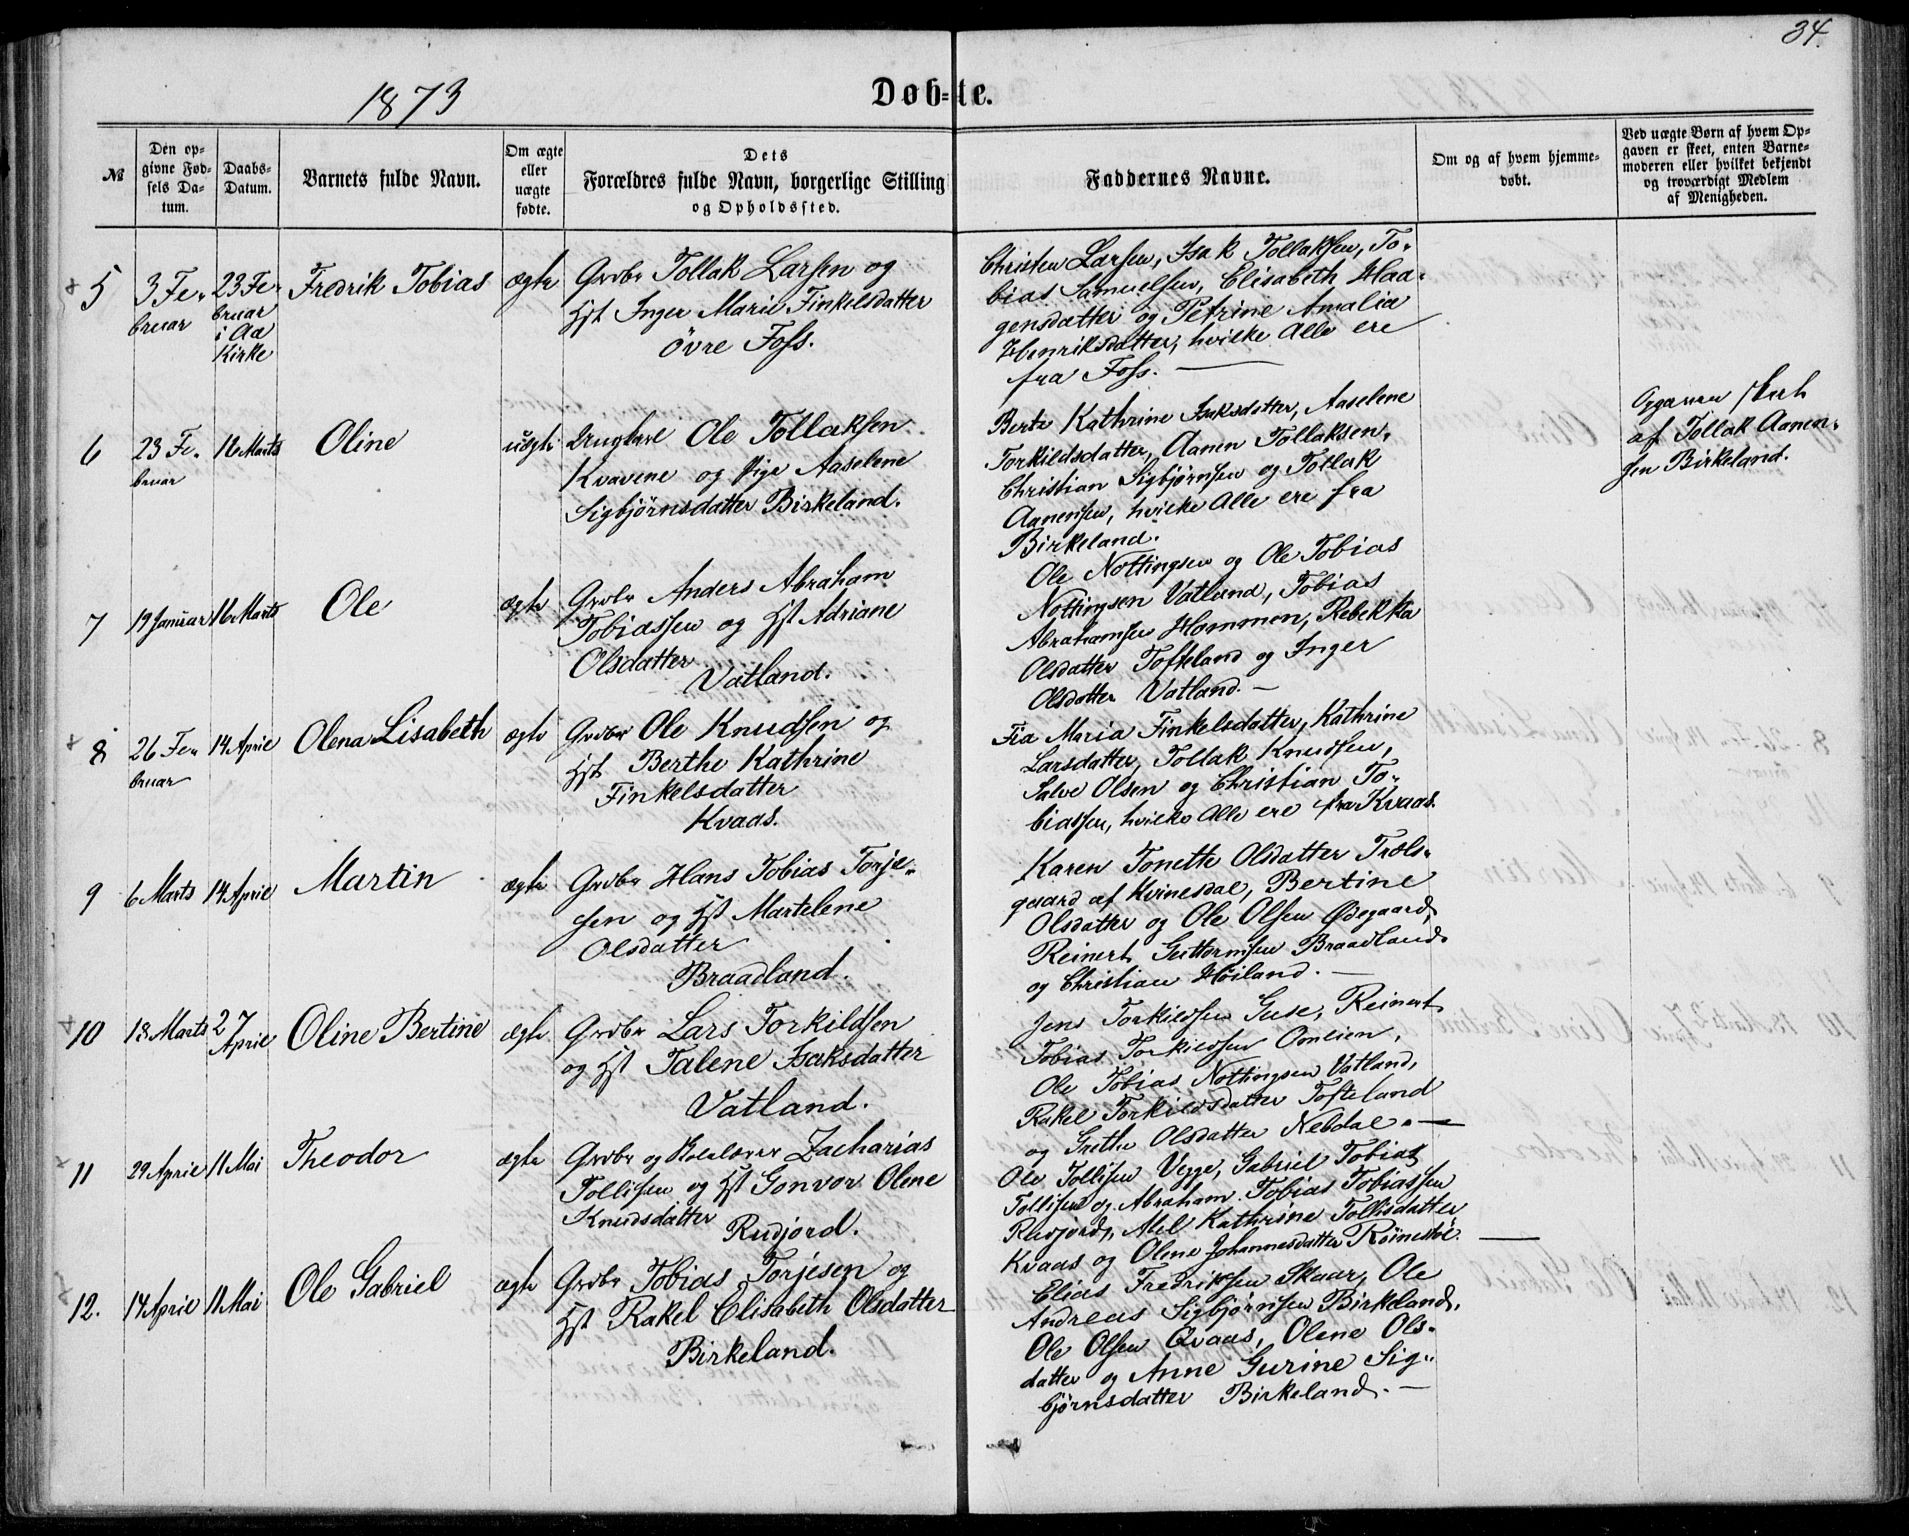 34.
1873
Døb-te.
№
Den op-
givne Fød-
sels Da-
tum.
Daabs-
Datum.
Barnets fulde Navn.
Om ægte
eller
uægte
fødte.
Dets
Forældres fulde Navn, borgerlige Stilling
og Opholdssted.
Faddernes Navne.
Om og af hvem hjemme-
døbt.
Ved uægte Børn af hvem Op-
gaven er skeet, enten Barne-
moderen eller hvilket bekjendt
og troværdigt Medlem
af Menigheden.
5
3 Fe-
bruar
23 Fe-
bruar
i Aa
Kirke
Fredrik Tobias
ægte
Grdbr Tollak Larsen og
Hst Inger Marie Finkelsdatter
Övre Foss.
Christen Larsen, Isak Tollaksen, To-
bias Samuelsen, Elisabeth Haa-
gensdatter og Petrine Amalia
Henriksdatter, hvilke Alle ere
fra Foss.
6
23 Fe-
bruar
16 Marts
Oline
uægte
Ungkarl Ole Tollaksen
Kvavene og Pige Aaselene
Sigbjørnsdatter Birkeland.
Berte Kathrine Isaksdatter, Aaselene
Torkildsdatter, Aanen Tollaksen,
Christian Sigbjørnsen og Tollak
Aanensen, hvilke Alle ere fra
Birkeland.
Opgaven skeet
af Tollak Aanen-
sen Birkeland.
7
19 Januar
16 Marts
Ole
ægte
Grdbr Anders Abraham
Tobiassen og Hst Adriane
Olsdatter
Vatland.
Ole Nottingsen og Ole Tobias
Nottingsen Vatland, Tobias
Abrahamsen Hommen, Rebekka
Olsdatter Tofteland og Inger
Olsdatter Vatland.
8
26 Fe-
bruar
14 April
Olena Lisabeth
ægte
Grdbr Ole Knudsen og
Hst Berthe Kathrine
Finkelsdatter
Kvaas.
Fia Maria Finkelsdatter, Kathrine
Larsdatter, Tollak Knudsen,
Salve Olsen og Christian To-
biassen, hvilke Alle ere fra Kvaas.
9
6 Marts
14 April
Martin
ægte
Grdbr Hans Tobias Torje-
sen og Hst Martelene
Olsdatter
Braadland.
Karen Tonette Olsdatter Træls-
gaard af Kvinesdal, Bertine
Olsdatter og Ole Olsen Ødegaard,
Reinert Guttormsen Braadland
og Christian Høiland.
10
18 Marts
27
April
Oline Bertine
ægte
Grdbr Lars Torkildsen
og Hst Talene Isaksdatter
Vatland.
Jens Torkildsen Guse, Reinert
Tobias Torkildsen Omlien,
Ole Tobias Nottingsen Vatland,
Rakel Torkildsdatter Tofteland
og Grethe Olsdatter Nebdal.
11
29 April
11 Mai
Theodor
ægte
Grdbr og Skolelærer Zacharias
Tollisen og Hst Gonvor Olene
Knudsdatter
Rudjord.
Ole Tollisen Vegge, Gabriel Tobias
Tollisen og Abraham Tobias Tobiassen
Rudjord, Abel Kathrine Tollisdatter
Kvaas og Olene Johannesdatter Röinestøl.
12.
14 April
11 Mai
Ole Gabriel
ægte
Grdbr Tobias Torjesen og
Hst Rakel Elisabeth Olsdatter
Birkeland.
Elias Fredriksen Skaar, Ole
Andreas Sigbjørnsen Birkeland,
Ole Olsen Qvaas, Olene Ols-
datter og Anne Gurine Sig-
bjørnsdatter Birkeland.